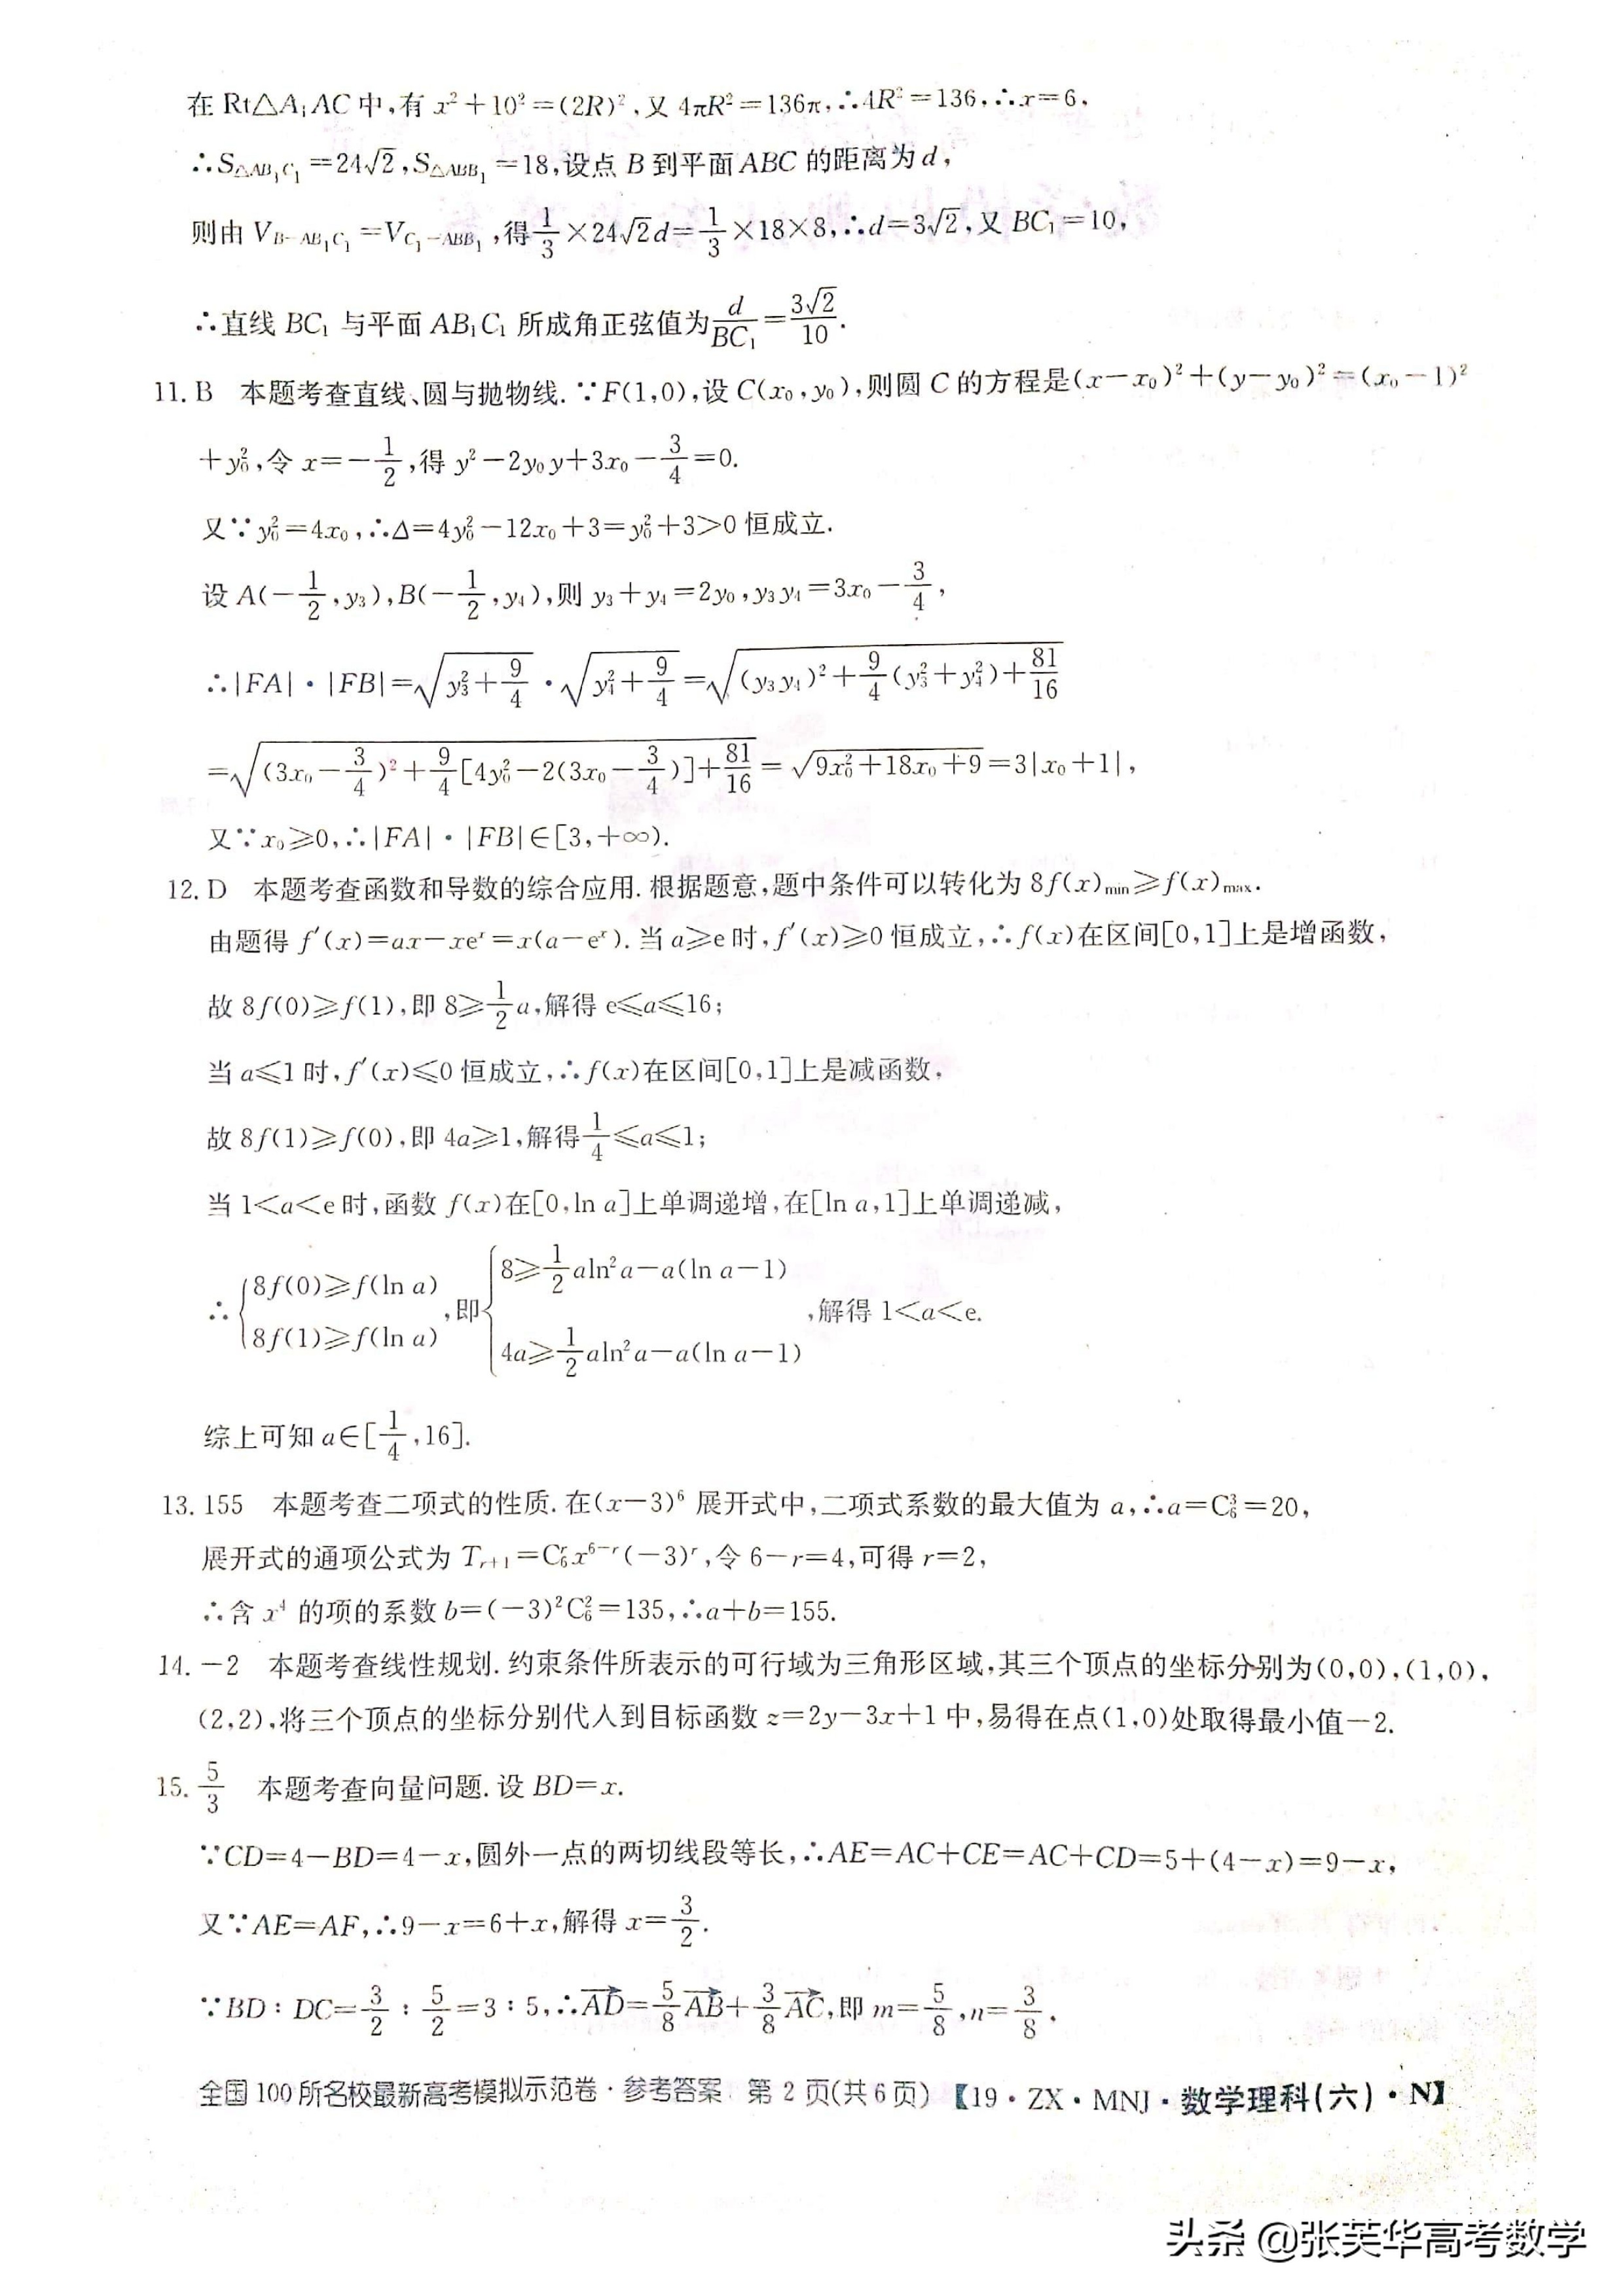 在 Rt△A₁AC 中,有 x²+10²=(2R)²,又 4πR²=136π,∴4R²=136,∴x=6,
∴S△AB₁C₁=24√2,S△ABB₁=18,设点 B 到平面 ABC 的距离为 d,
则由 V_{B-AB₁C₁}=V_{C₁-ABB₁},得1/3×24√2d=1/3×18×8,∴d=3√2,又 BC₁=10,
∴直线 BC₁ 与平面 AB₁C₁ 所成角正弦值为d/BC₁=3√2/10.
11. B 本题考查直线、圆与抛物线.∵F(1,0),设 C(x₀,y₀),则圆 C 的方程是(x−x₀)²+(y−y₀)²=(x₀−1)²
+y₀²,令 x=−1/2,得 y²−2y₀y+3x₀−3/4=0.
又∵y₀²=4x₀,∴Δ=4y₀²−12x₀+3=y₀²+3>0 恒成立.
设 A(−1/2,y₃),B(−1/2,y₄),则 y₃+y₄=2y₀,y₃y₄=3x₀−3/4,
∴|FA|·|FB|=√(y₃²+9/4)·√(y₄²+9/4)=√((y₃y₄)²+9/4(y₃²+y₄²)+81/16)
=√((3x₀−3/4)²+9/4[4y₀²−2(3x₀−3/4)]+81/16)=√(9x₀²+18x₀+9)=3|x₀+1|,
又∵x₀≥0,∴|FA|·|FB|∈[3,+∞).
12. D 本题考查函数和导数的综合应用.根据题意,题中条件可以转化为 8f(x)min≥f(x)max.
由题得 f′(x)=ax−xeˣ=x(a−eˣ).当 a≥e 时,f′(x)≥0 恒成立,∴f(x)在区间[0,1]上是增函数,
故 8f(0)≥f(1),即 8≥1/2a,解得 e≤a≤16;
当 a≤1 时,f′(x)≤0 恒成立,∴f(x)在区间[0,1]上是减函数,
故 8f(1)≥f(0),即 4a≥1,解得1/4≤a≤1;
当 1<a<e 时,函数 f(x)在[0,ln a]上单调递增,在[ln a,1]上单调递减,
∴{8f(0)≥f(ln a) 8f(1)≥f(ln a),即{8≥1/2aln²a−a(ln a−1) 4a≥1/2aln²a−a(ln a−1),解得 1<a<e.
综上可知 a∈[1/4,16].
13. 155 本题考查二项式的性质.在(x−3)⁶ 展开式中,二项式系数的最大值为 a,∴a=C₆³=20,
展开式的通项公式为 Tᵣ₊₁=C₆ʳx⁶⁻ʳ(−3)ʳ,令 6−r=4,可得 r=2,
∴含 x⁴ 的项的系数 b=(−3)²C₆²=135,∴a+b=155.
14. −2 本题考查线性规划.约束条件所表示的可行域为三角形区域,其三个顶点的坐标分别为(0,0),(1,0),
(2,2),将三个顶点的坐标分别代入到目标函数 z=2y−3x+1 中,易得在点(1,0)处取得最小值−2.
15. 5/3 本题考查向量问题.设 BD=x.
∵CD=4−BD=4−x,圆外一点的两切线段等长,∴AE=AC+CE=AC+CD=5+(4−x)=9−x,
又∵AE=AF,∴9−x=6+x,解得 x=3/2.
∵BD∶DC=3/2∶5/2=3∶5,∴AD→=5/8AB→+3/8AC→,即 m=5/8,n=3/8,
全国 100 所名校最新高考模拟示范卷·参考答案 第 2 页(共 6 页) 【19·ZX·MNJ·数学理科(六)·N】
头条 @张芙华高考数学